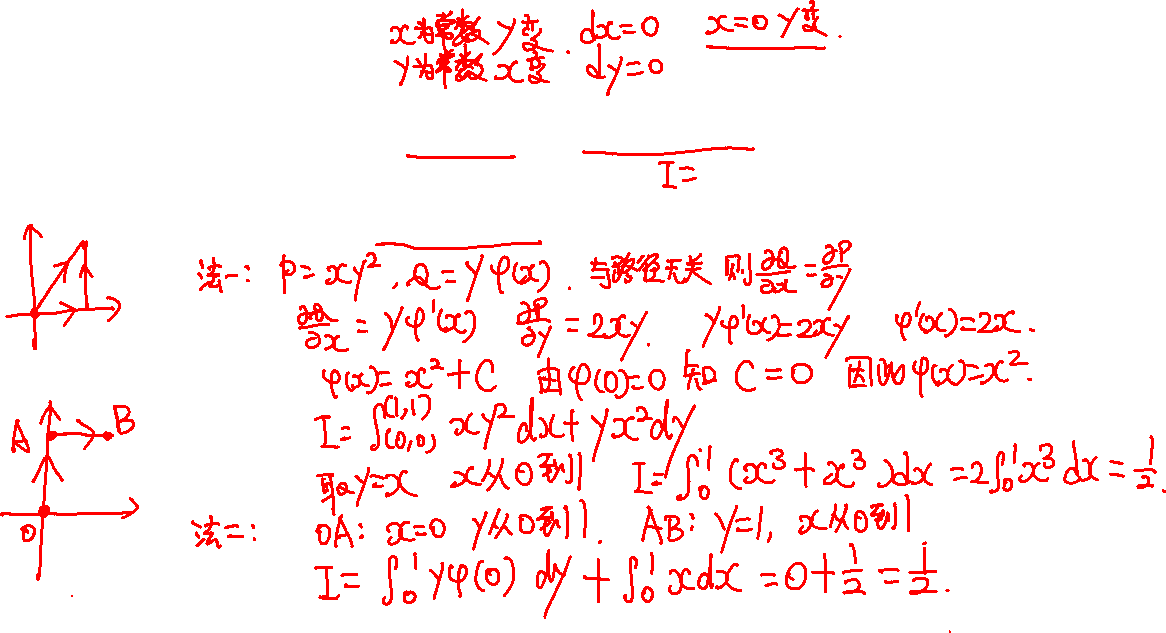 x为常数 y变. dx=0 x=0 y变.
y为常数 x变 dy=0
I=
法一: P=xy², Q=yφ(x). 与路径无关 则 ∂Q/∂x=∂P/∂y
∂Q/∂x=yφ'(x) ∂P/∂y=2xy. yφ'(x)=2xy φ'(x)=2x.
φ(x)=x²+C 由φ(0)=0 知 C=0 因此φ(x)=x².
I=∫_(0,0)^(1,1) xy²dx+yx²dy
取y=x x从0到1 I=∫₀¹(x³+x³)dx=2∫₀¹x³dx=1/2.
A B
O
法二: OA: x=0 y从0到1. AB: y=1, x从0到1
I=∫₀¹yφ(0) dy+∫₀¹xdx=0+1/2=1/2.